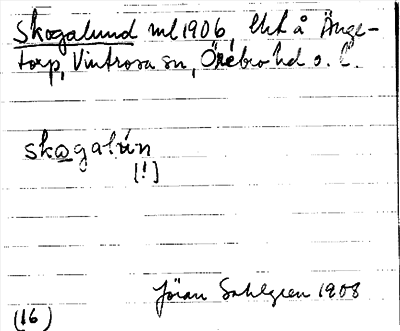 Skogalund ml 1906, lht å Ånge-
torp, Vintrosa sn, Örebro hd o. l.
skogalún
[!]
Jöran Sahlgren 1908
(16)